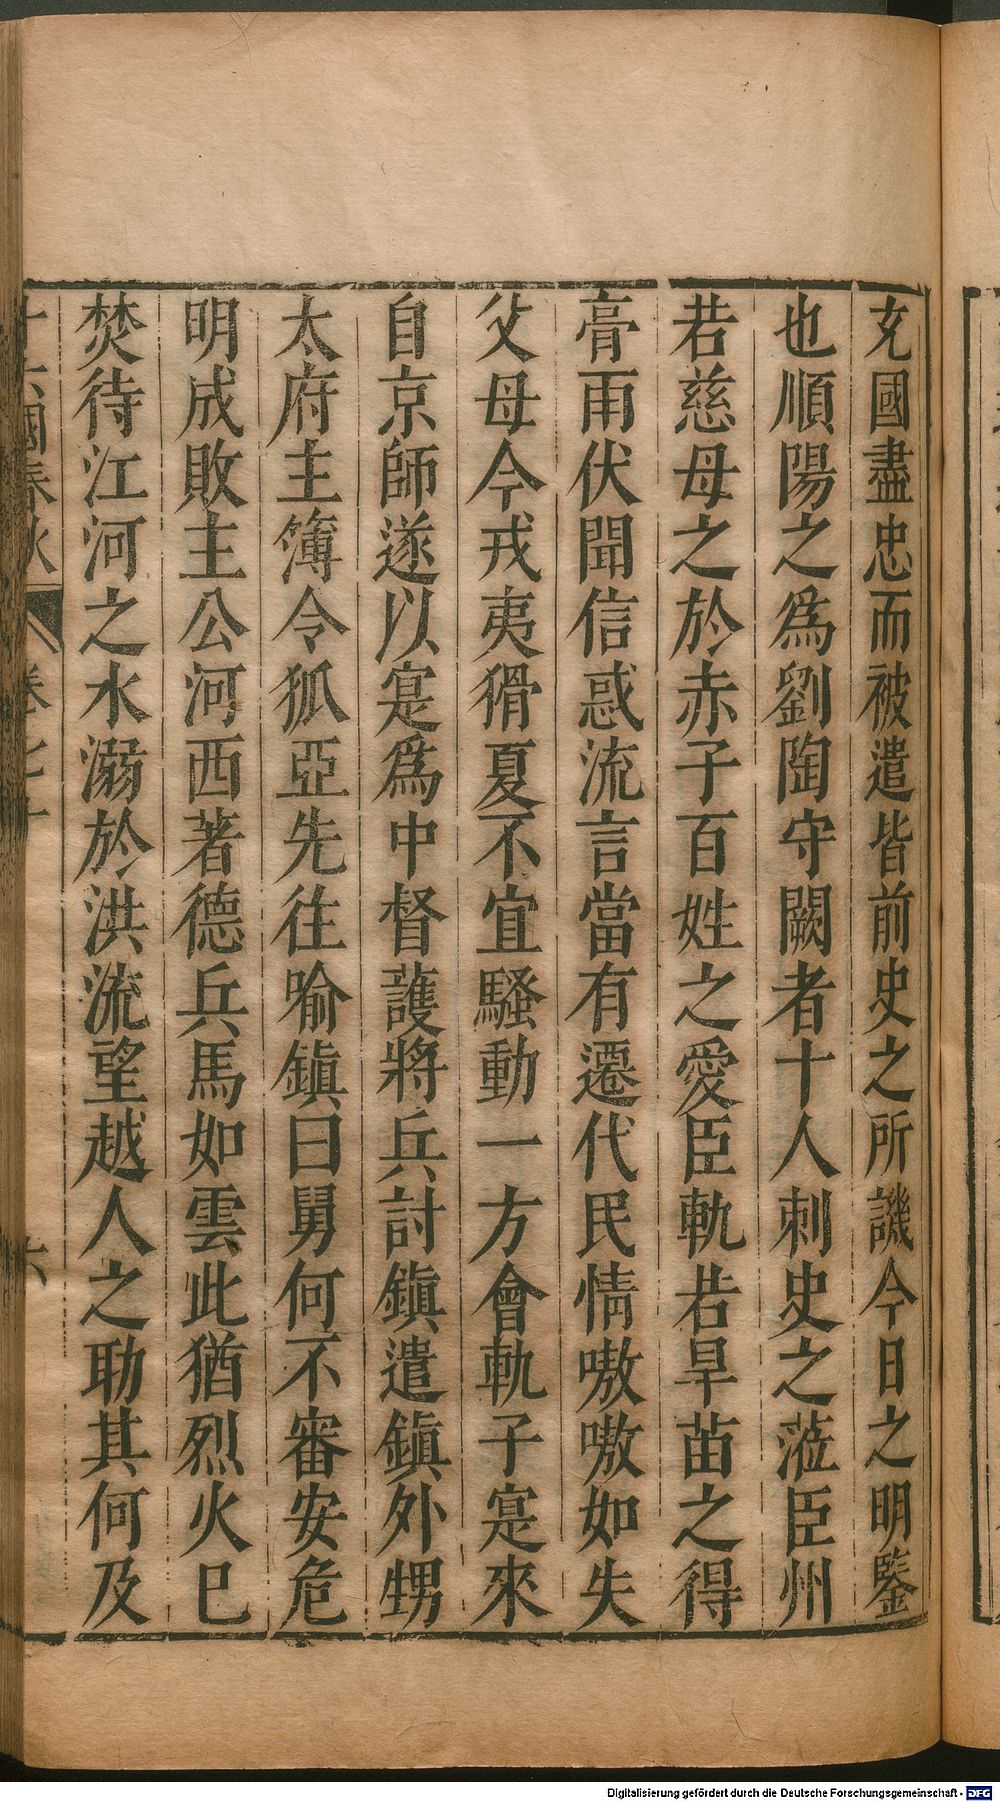 兗國盡忠而被遣皆前史之所譏今日之明鑒
也順陽之爲劉陶守闕者十人刺史之蒞臣州
若慈母之於赤子百姓之愛臣軌若旱苗之得
膏雨伏聞信惑流言當有遷代民情嗷嗷如失
父母今戎夷猾夏不宜騷動一方會軌子寔來
自京師遂以寔爲中督護將兵討鎮遣鎮外甥
太府主簿令狐亞先往喻鎮曰舅何不審安危
明成敗主公河西著德兵馬如雲此猶烈火巳
焚待江河之水溺於洪流望越人之助其何及
十六國春秋 卷七十 六
Digitalisierung gefördert durch die Deutsche Forschungsgemeinschaft - DFG